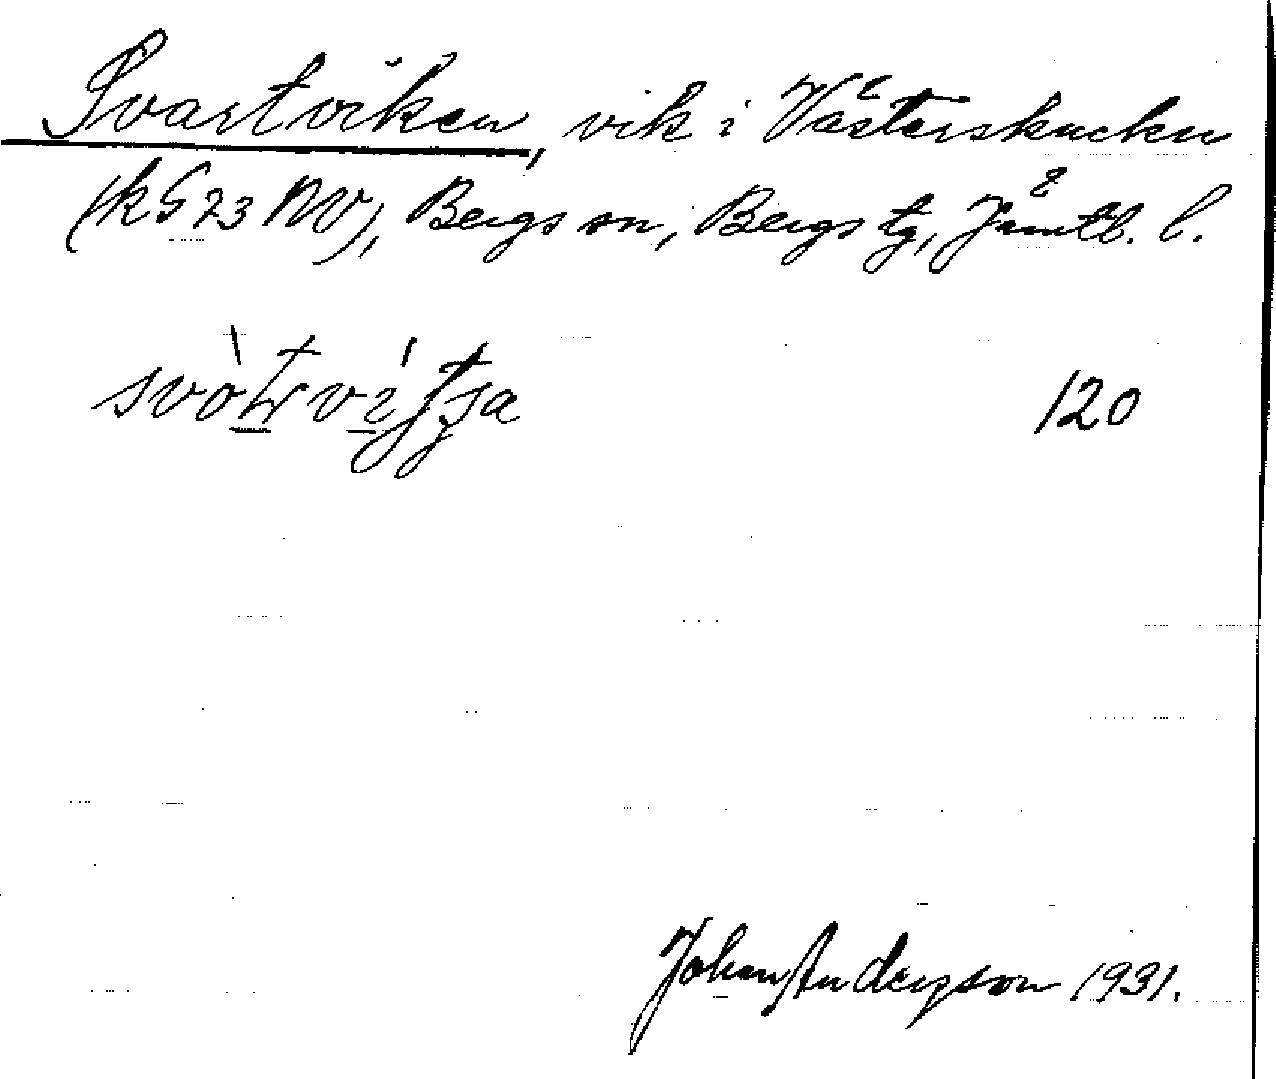 Svartviken, vik i Västerskucku
(k G 23 NV), Bergs sn, Bergs tg, Jämtl. l.
120
Johan Andersson 1931.